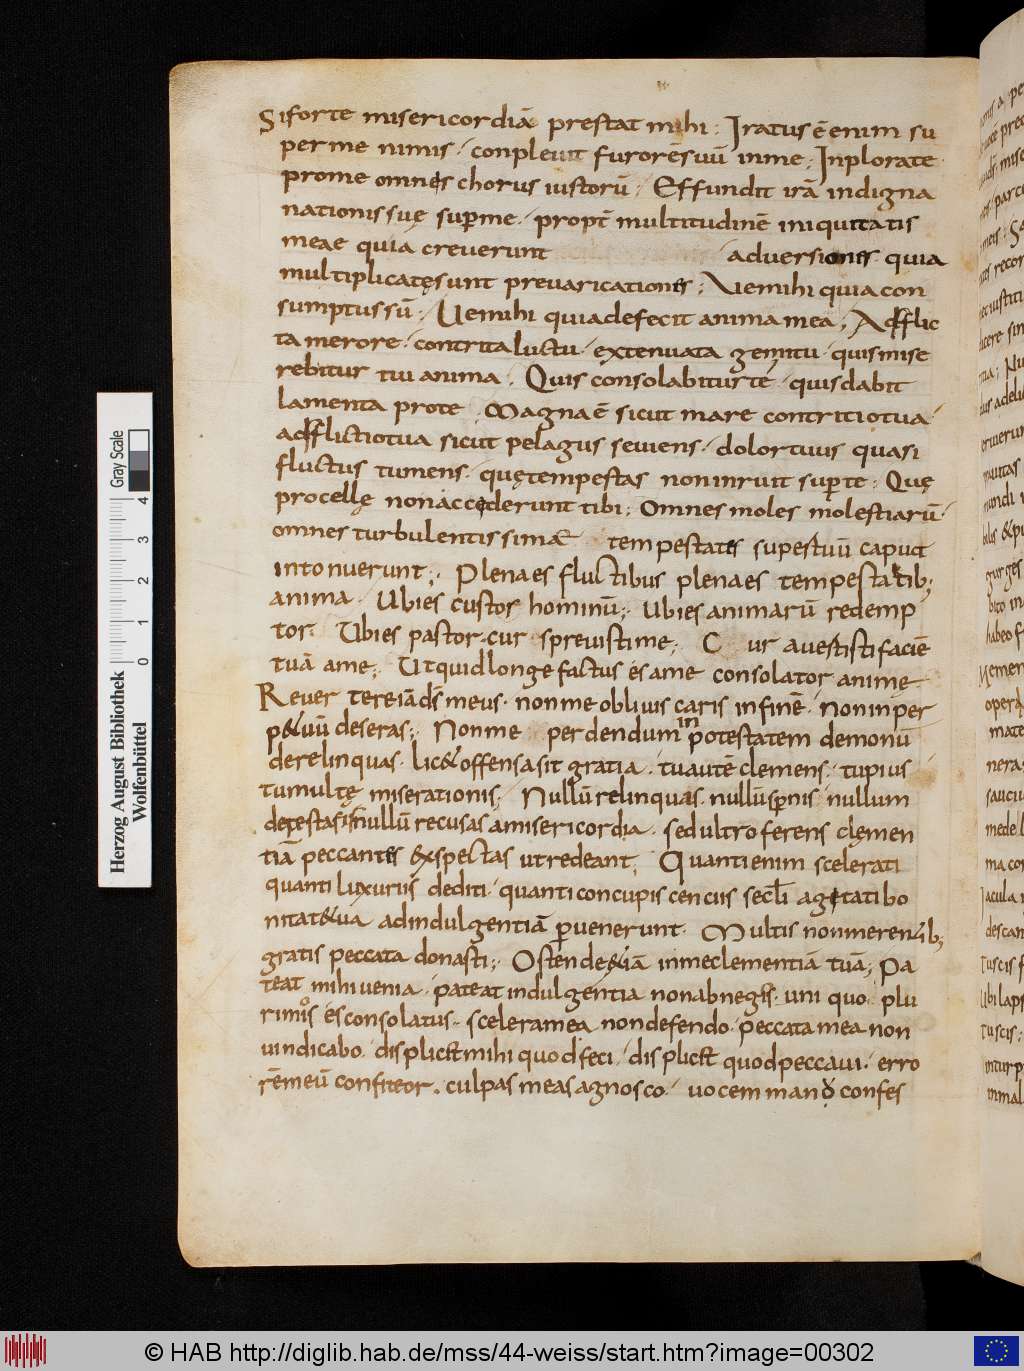 Siforte misericordiā prestat mihi ; Iratus ē enim su
per me nimis · conpleuit furorēsuū inme ; Inplorate
prome omnes chorus iustorū ; Effundit irā indigna
nationis suę sup̄me · propt̄ multitudinē iniquitatis
meae quia creuerunt · aduersiones quia
multiplicatęsunt preuaricationes ; Uemihi quia con
sumptus sū ; Uemihi quiadefecit anima mea ; Adfflic
ta merore · contrita luctu · extenuata gemitu · quismise
rebitur tui anima . Quis consolabitur te · quisdabit
lamenta prote . Magna ē sicut mare contritiotua ·
adfflictiotua sicut pelagus seuiens · dolortuus quasi
fluctus tumens · quętempestas noninruit sup̄te ; Quę
procellę nonaccederunt tibi ; Omnes moles molestiarū ·
omnes turbulentissimae tempestates supestuū caput
intonuerunt ; Plenaes fluctibus plenaes tempestatib;
anima · Ubies custos hominū ; Ubies animarū redemp
tor · Ubies pastor · cur spreuistime ; Cur auertisti faciē
tuā ame ; Utquid longe factus es ame consolator anime
Reuer tereiā dš meus · nonme obliuiscaris infinē · noninper
p&uū deseras ; Nonme perdendum in potestatem demonū
derelinquas · lic& offensasit gratia · tuautē clemens · tupius
tumultę miserationis ; Nullū relinquas · nullū sp̄nis · nullum
detestasis nullū recusas amisericordia · sedultro ferens clęmen
tiā peccantes exspectas utredeant ; Quantienim scelerati
quanti luxuriis dediti · quanti concupiscenciis secl̄i agitati bo
nitat&ua adindulgentiā p̄uenerunt · Multis nonmerentib;
gratis peccata donasti ; Ostende&iā inmeclementiā tuā ; Pa
teat mihi uenia · pateat indulgentia nonabneges · uni quo plu
rimos es consolatus · sceleramea nondefendo · peccata mea non
uindicabo · displicet mihi quod feci · displicet quodpeccaui · erro
rēmeū confiteor · culpas meas agnosco · uocem mando confes
Herzog August Bibliothek
Wolfenbüttel
Gray Scale
0 1 2 3 4
© HAB http://diglib.hab.de/mss/44-weiss/start.htm?image=00302